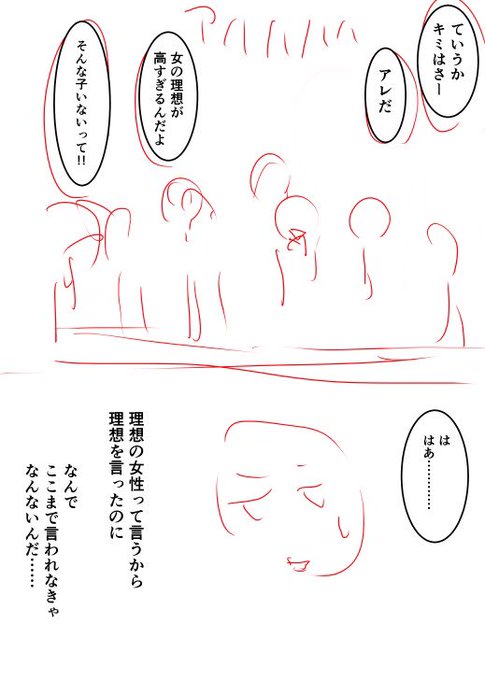 ていうか
キミはさー
アレだ
アハハハハハ
女の理想が
高すぎるんだよ
そんな子いないって!!
は
はあ…………
理想の女性って言うから
理想を言ったのに
なんで
ここまで言われなきゃ
なんないんだ……